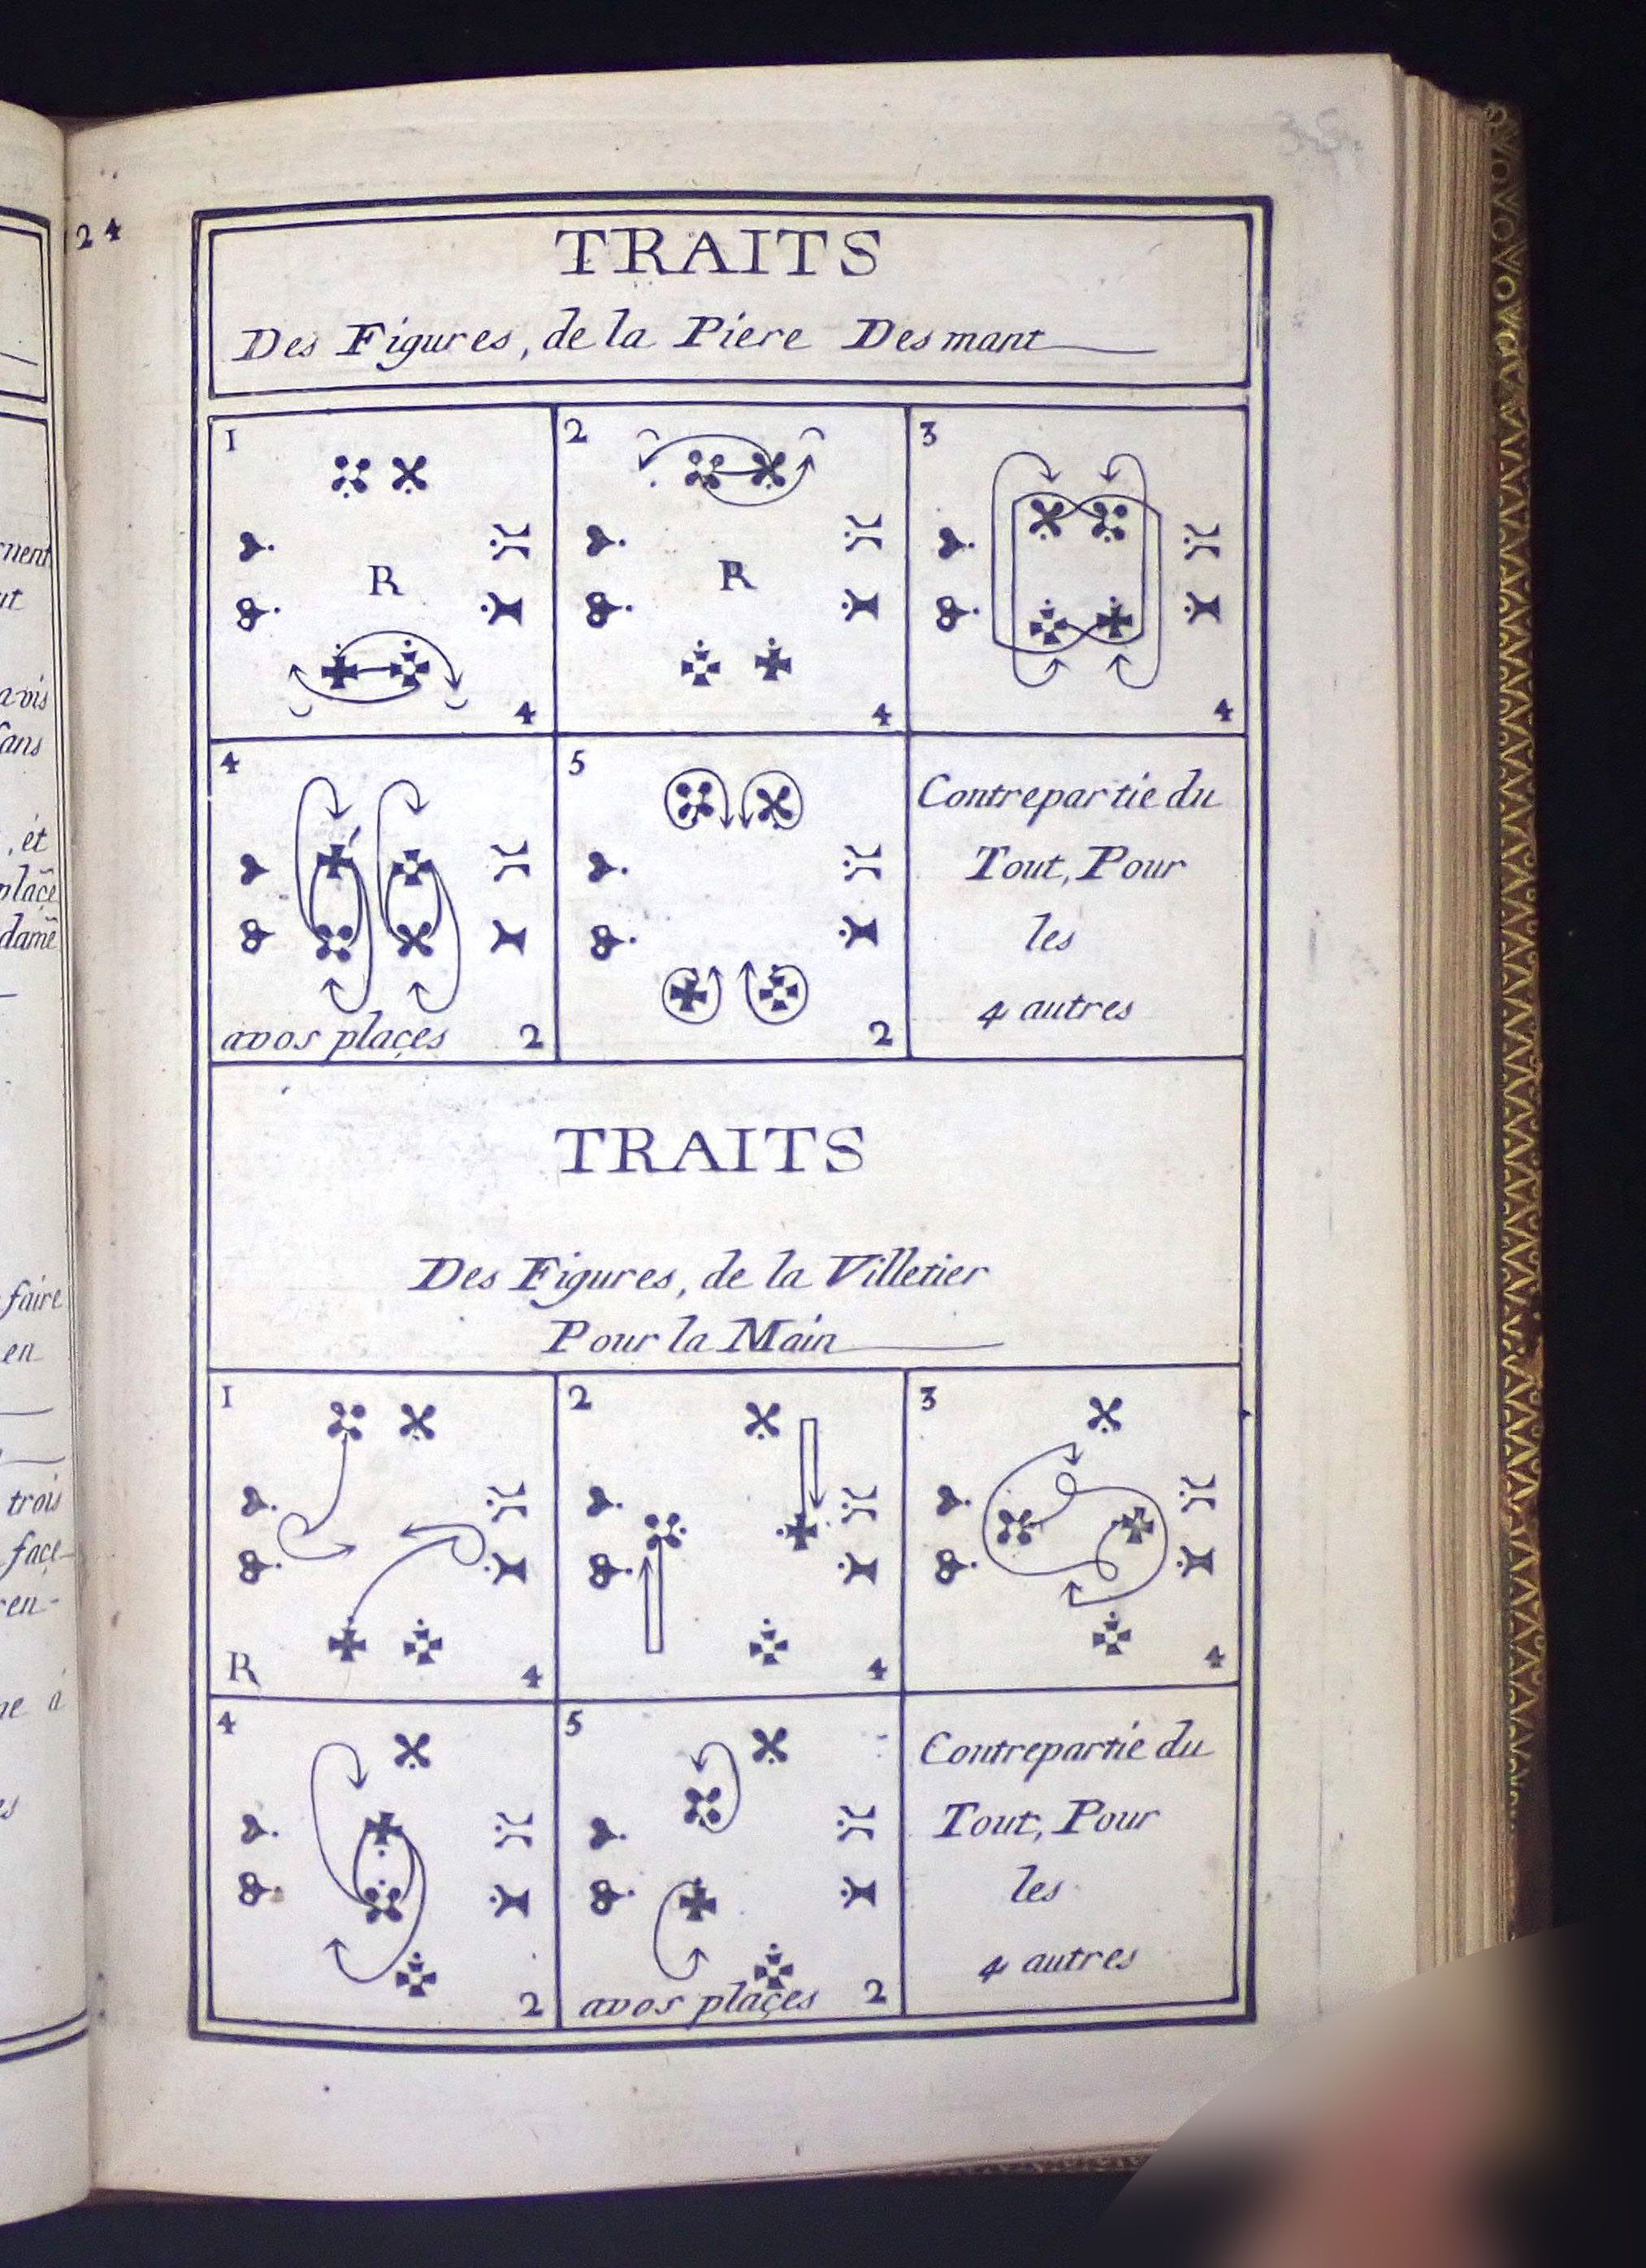 24
TRAITS
Des Figures, de la Piere Desmant
1
R
4
2
R
4
3
4
4
avos plaçes
2
5
2
Contrepartie du
Tout, Pour
les
4 autres
TRAITS
Des Figures, de la Villetier
Pour la Main
1
R
4
2
4
3
4
4
2
5
avos plaçes
2
Contrepartie du
Tout, Pour
les
4 autres
avis
, et
plaçe
dame
faire
en
trois
façe